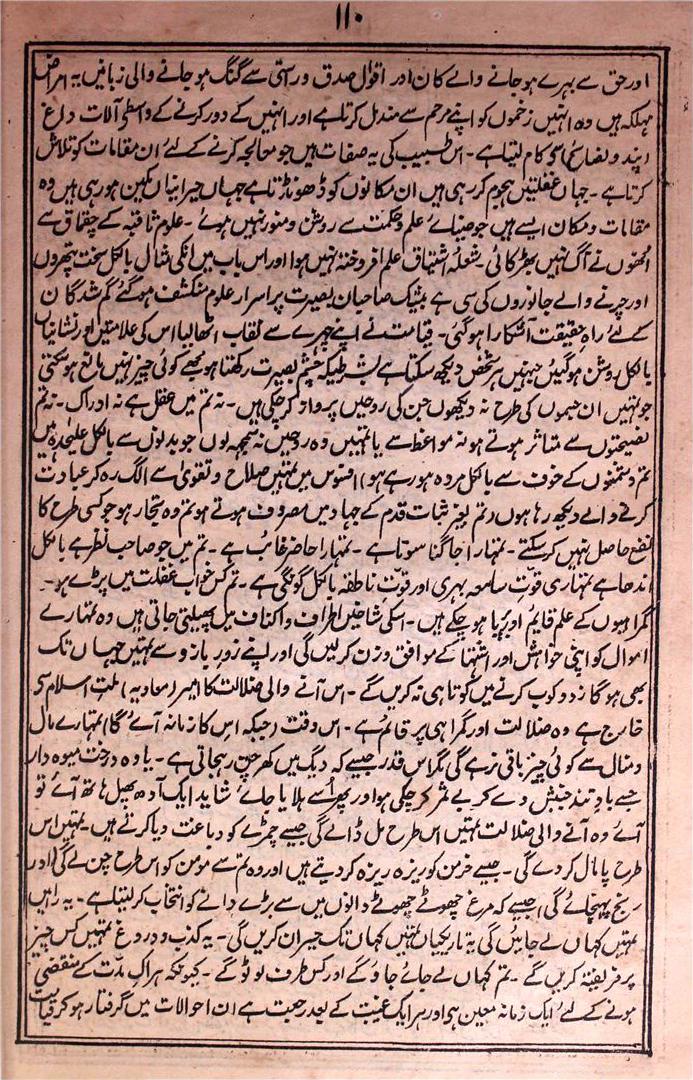 ۱۱۰
اور حق سے بہرے ہوجانے والے کان اور اقوال صدق و راستی سے گنگ ہوجانے والی زبانیں یہ امراض
مہلکہ ہیں وہ انہیں زخموں کو اپنے مرہم سے مندمل کرتا ہے اور انہیں کے دور کرنے کے واسطے آلات داغ
(پند و نصائح) سے کام لیتا ہے۔ اس طبیب کی یہ صفات ہیں جو معالجہ کرنے کے لئے ان مقامات کو تلاش
کرتا ہے۔ جہاں غفلتیں ہجوم کر رہی ہیں ان مکانوں کو ڈھونڈتا ہے جہاں حیرانیاں مکین ہو رہی ہیں وہ
مقامات و مکان ایسے ہیں جو ضیائے علم و حکمت سے روشن و منور نہیں ہوئے۔ علوم ثاقبہ کے چقماق سے
اُنھوں نے آگ نہیں بھڑکائی۔ شعلۂ اشتیاق علم افروختہ نہیں ہوا اور اس باب میں انکی مثال بالکل سخت پتھروں
اور چرنے والے جانوروں کی سی ہے بیشک صاحبان بصیرت پر اسرار علوم منکشف ہوگئے گمشدگان
کے لئے راہ حقیقت آشکارا ہوگئی۔ قیامت نے اپنے چہرے سے نقاب اٹھالیا اس کی علامتیں اور نشانیاں
بالکل روشن ہوگئیں جنہیں ہر شخص دیکھ سکتا ہے بشرطیکہ چشم بصیرت رکھتا ہو مجھے کوئی چیز نہیں مانع ہو سکتی
جو تمہیں ان جسموں کی طرح نہ دیکھوں جن کی روحیں پرواز کر چکی ہیں۔ نہ تم میں عقل ہے نہ ادراک۔ نہ تم
نصیحتوں سے متاثر ہوتے ہو نہ مواعظ سے یا تمہیں وہ روحیں نہ سمجھ لوں جو بدنوں سے بالکل علیحدہ ہیں
تم دشمنوں کے خوف سے بالکل مردہ ہو رہے ہو) افسوس میں تمہیں صلاح و تقویٰ سے الگ رہ کر عبادت
کرنے والے دیکھ رہا ہوں (تم بغیر ثبات قدم کے جہاد میں مصروف ہوتے ہو تم وہ تجار ہو جو کسی طرح کا
نفع حاصل نہیں کر سکتے۔ تمہارا جاگنا سونا ہے۔ تمہارا حاضر غائب ہے۔ تم میں جو صاحب نظر ہے بالکل
اندھا ہے تمہاری قوّت سامعہ بہری اور قوّت ناطقہ بالکل گونگی ہے۔ تم کس خواب غفلت میں پڑے ہو۔
گمراہیوں کے علم قایم اور برپا ہو چکے ہیں۔ اسکی شاخیں اطراف و اکناف میں پھیلتی جاتی ہیں وہ تمہارے
اموال کو اپنی خواہش اور اشتہا کے موافق وزن کرلیں گی اور اپنے زور بازو سے تمہیں جہاں تک
بھی ہوگا زد و کوب کرنے میں کوتاہی نہ کریں گے۔ اس آنے والی ضلالت کا امیر (معاویہ) ملت اسلام سے
خارج ہے وہ ضلالت اور گمراہی پر قائم ہے۔ اس وقت (جبکہ اس کا زمانہ آئے گا) تمہارے مال
و منال سے کوئی چیز باقی نہ رہے گی مگر اس قدر جیسے کہ دیگ میں کھرچن رہجاتی ہے۔ یا وہ درخت میوہ دار
جسے باد تند جنبش دے کر بے ثمر کر چکی ہو اور پھر اُسے ہلایا جائے شاید ایک آدھ پھل ہاتھ آئے تو
آئے وہ آنے والی ضلالت تمہیں اس طرح مل ڈالے گی جیسے چمڑے کو دباغت دیا کرتے ہیں۔ تمہیں اس
طرح پامال کردے گی۔ جیسے خرمن کو ریزہ ریزہ کردیتے ہیں اور وہ تم سے مومن کو اس طرح چن لے گی (اور
رنج پہنچائے گی) جیسے کہ مرغ چھوٹے چھوٹے دانوں میں سے بڑے دانے کو انتخاب کر لیتا ہے۔ یہ راہیں
تمہیں کہاں لے جائیں گی یہ تاریکیاں تمہیں کہاں تک حیران کریں گی۔ یہ کذب و دروغ تمہیں کس چیز
پر فریفتہ کریں گے۔ تم کہاں لے جائے جاؤ گے اور کس طرف لوٹو گے۔ کیونکہ ہر اک مدّت کے منقضی
ہونے کے لئے ایک زمانہ معین ہے اور ہر ایک غیبت کے بعد رجعت ہے ان احوالات میں گرفتار ہو کر قیامت